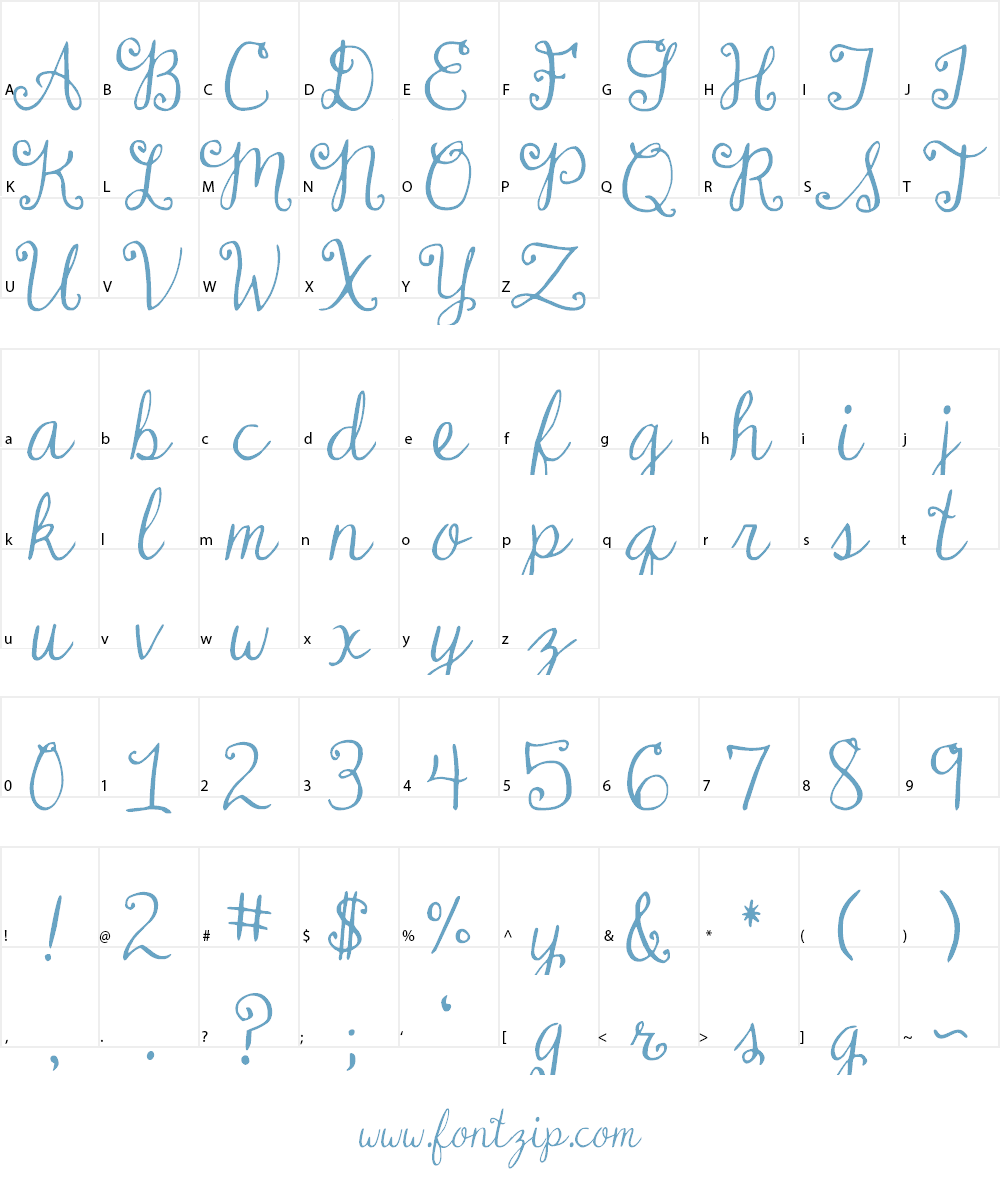 A A B B C C D D E E F F G G H H I I J J
K K L L M M N N O O P P Q Q R R S S T T
U U V V W W X X Y Y Z Z
a a b b c c d d e e f f g g h h i i j j
k k l l m m n n o o p p q q r r s s t t
u u v v w w x x y y z z
0 0 1 1 2 2 3 3 4 4 5 5 6 6 7 7 8 8 9 9
! ! @ 2 # # $ $ % % ^ y & & * * ( ( ) )
, , . . ? ? ; ; ‘ ‘ [ g < r > s ] g ~ ~
www.fontzip.com